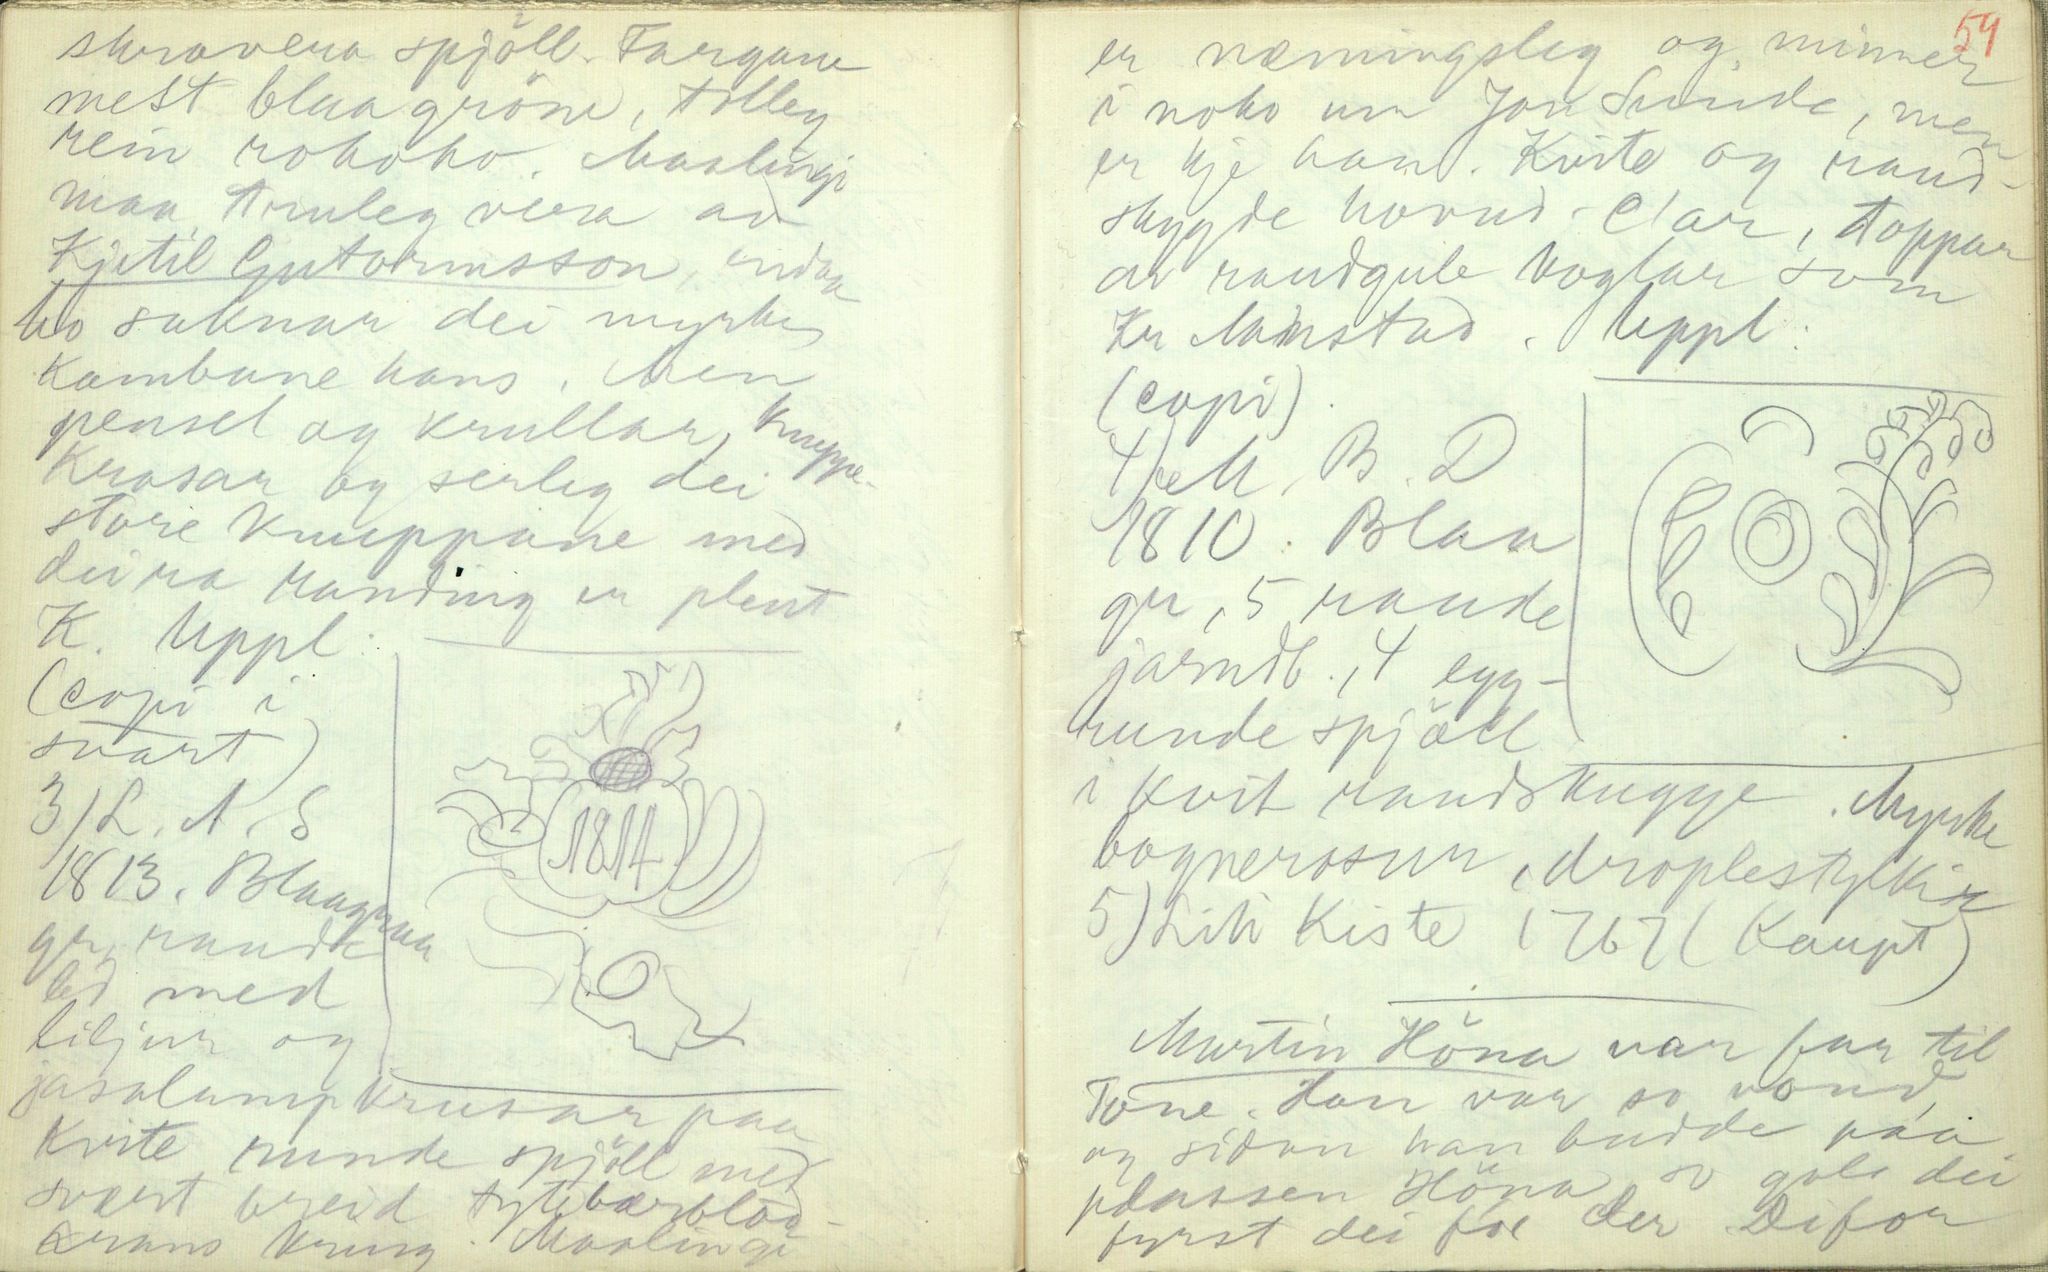 skravera spjöll. Fargane
mest blaagröne, tolleg
rein rokoko. Maalingi
maa truleg vera av
Kjetil Guttormsson, endaa
ho saknar dei myrke
kambane hans. Men
pensel og krullar, knuppe-
krosar og serleg dei
store knuppane med
deira randing er plent
K. Uppl:
(copi i
svart)
1814
3) L. A. S
1813. Blaagraa
gr, raude
bd med
liljur og
krusar paa
kvite runde spjöll med
svært breid tytebærblad-
krans kring. Maalingi
54
er næmingsleg og minner
i noko um Jon Sunde, men
er kje han. Kvite og raud-
skygde hovud-Clar, toppar
av raudgule voglar som
Kr Uppl:
(copi).
4) M. B. D
1810. Blaa
gr, 5 raude
jarndb., 4 egg-
runde spjöll
i kvit raudskugge. Myrke
vognerosur, droplestylkin
5) Liti Kiste 1767 (Kaupt)
Martin Höna var far til
Tone. Han var so vond,
og sidan han budde paa
plassen Höna, so gol dei
fyrst dei for der Difor